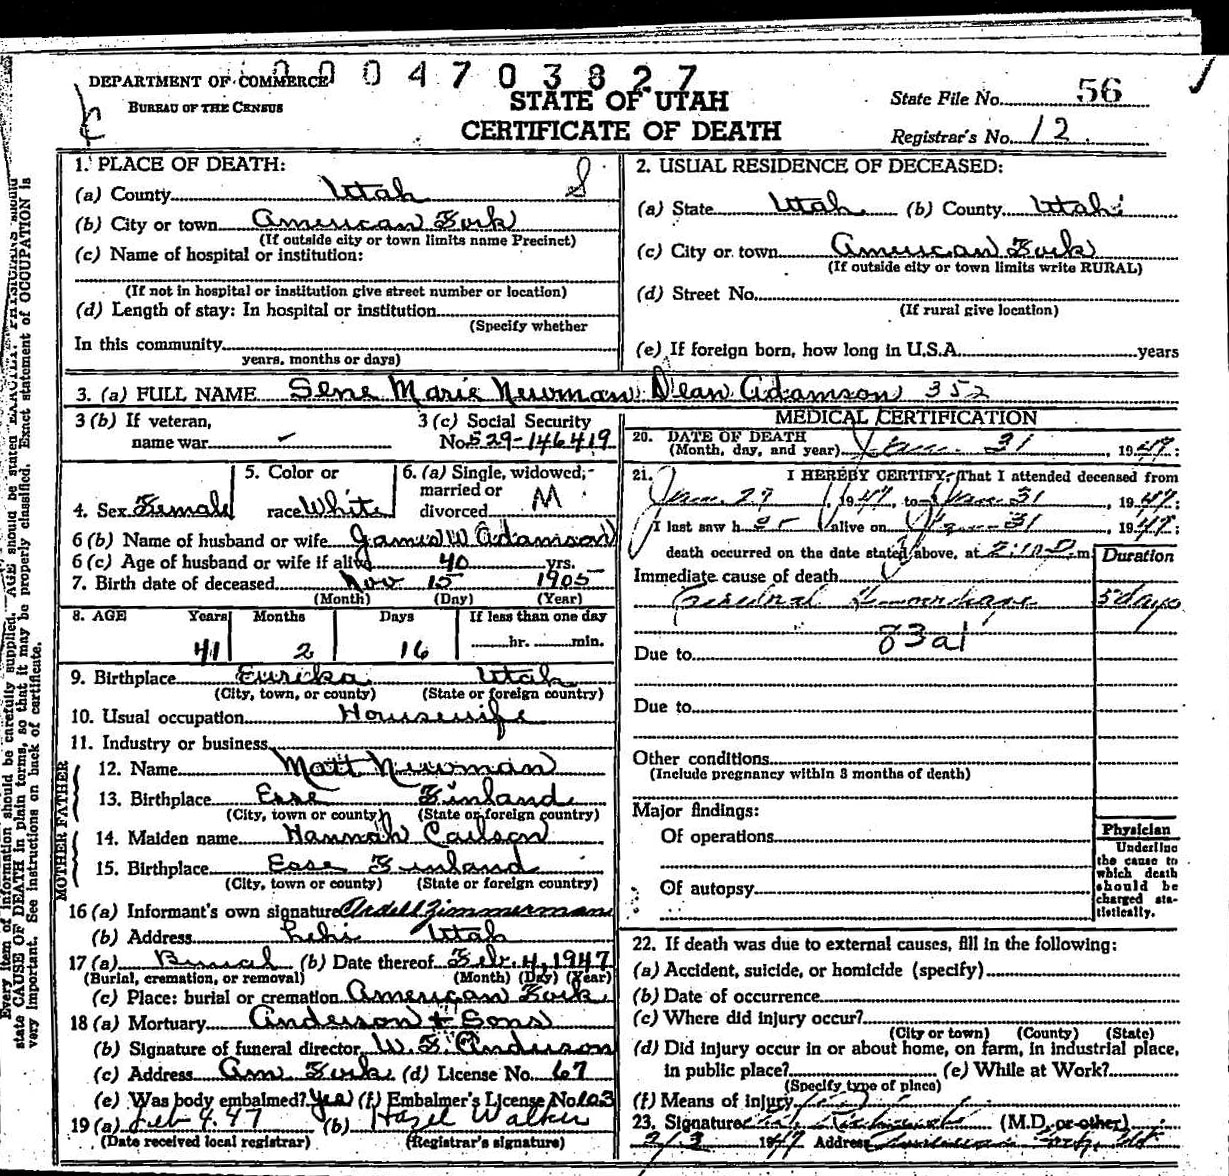 0004703827
DEPARTMENT OF COMMERCE
BUREAU OF THE CENSUS
STATE OF UTAH
CERTIFICATE OF DEATH
State File No. 56
Registrar's No. 12
1. PLACE OF DEATH:
(a) County Utah
(b) City or town American Fork
(If outside city or town limits name Precinct)
(c) Name of hospital or institution:
(If not in hospital or institution give street number or location)
(d) Length of stay: In hospital or institution
(Specify whether
In this community
years, months or days)
2. USUAL RESIDENCE OF DECEASED:
(a) State Utah (b) County Utah
(c) City or town American Fork
(If outside city or town limits write RURAL)
(d) Street No.
(If rural give location)
(e) If foreign born, how long in U.S.A. years
3. (a) FULL NAME Sene Marie Newman Dean Adamson 352
3 (b) If veteran, name war
3 (c) Social Security No. 529-146419
4. Sex Female
5. Color or race White
6. (a) Single, widowed, married or divorced M
6 (b) Name of husband or wife James W Adamson
6 (c) Age of husband or wife if alive 40 yrs.
7. Birth date of deceased Nov 15 1905
(Month) (Day) (Year)
8. AGE Years Months Days If less than one day
41 2 16 hr. min.
9. Birthplace Eureka Utah
(City, town, or county) (State or foreign country)
10. Usual occupation Housewife
11. Industry or business
FATHER
12. Name Matt Newman
13. Birthplace Esse Finland
(City, town, or county) (State or foreign country)
MOTHER
14. Maiden name Hannah Carlson
15. Birthplace Esse Finland
(City, town, or county) (State or foreign country)
16 (a) Informant's own signature Ardell Zimmerman
(b) Address Lehi Utah
17 (a) Burial (b) Date thereof Feb. 4, 1947
(Burial, cremation, or removal) (Month) (Day) (Year)
(c) Place: burial or cremation American Fork
18 (a) Mortuary Anderson & Sons
(b) Signature of funeral director W. F. Anderson
(c) Address Am Fork (d) License No. 67
(e) Was body embalmed? Yes (f) Embalmer's License No. 103
19 (a) Feb 4. 47 (b) Hazel Walker
(Date received local registrar) (Registrar's signature)
MEDICAL CERTIFICATION
20. DATE OF DEATH
(Month, day, and year) Jan. 31, 1947:
21. I HEREBY CERTIFY, That I attended deceased from
Jan. 27, 1947, to Jan 31, 1947:
I last saw her alive on Jan 31, 1947:
death occurred on the date stated above, at 2:10 P m
Duration
Immediate cause of death
Cerebral Hemorrhage 5 days
83a1
Due to
Due to
Other conditions
(Include pregnancy within 3 months of death)
Major findings:
Of operations
Of autopsy
Physician
Underline
the cause to
which death
should be
charged sta-
tistically.
22. If death was due to external causes, fill in the following:
(a) Accident, suicide, or homicide (specify)
(b) Date of occurrence
(c) Where did injury occur?
(City or town) (County) (State)
(d) Did injury occur in or about home, on farm, in industrial place,
in public place? (e) While at Work?
(Specify type of place)
(f) Means of injury
23. Signature (M.D. or other)
2/3 1947 Address American Fork, Ut
Every item of information should be carefully supplied. AGE should be stated EXACTLY. PHYSICIANS should
state CAUSE OF DEATH in plain terms, so that it may be properly classified. Exact statement of OCCUPATION is
very important. See instructions on back of certificate.